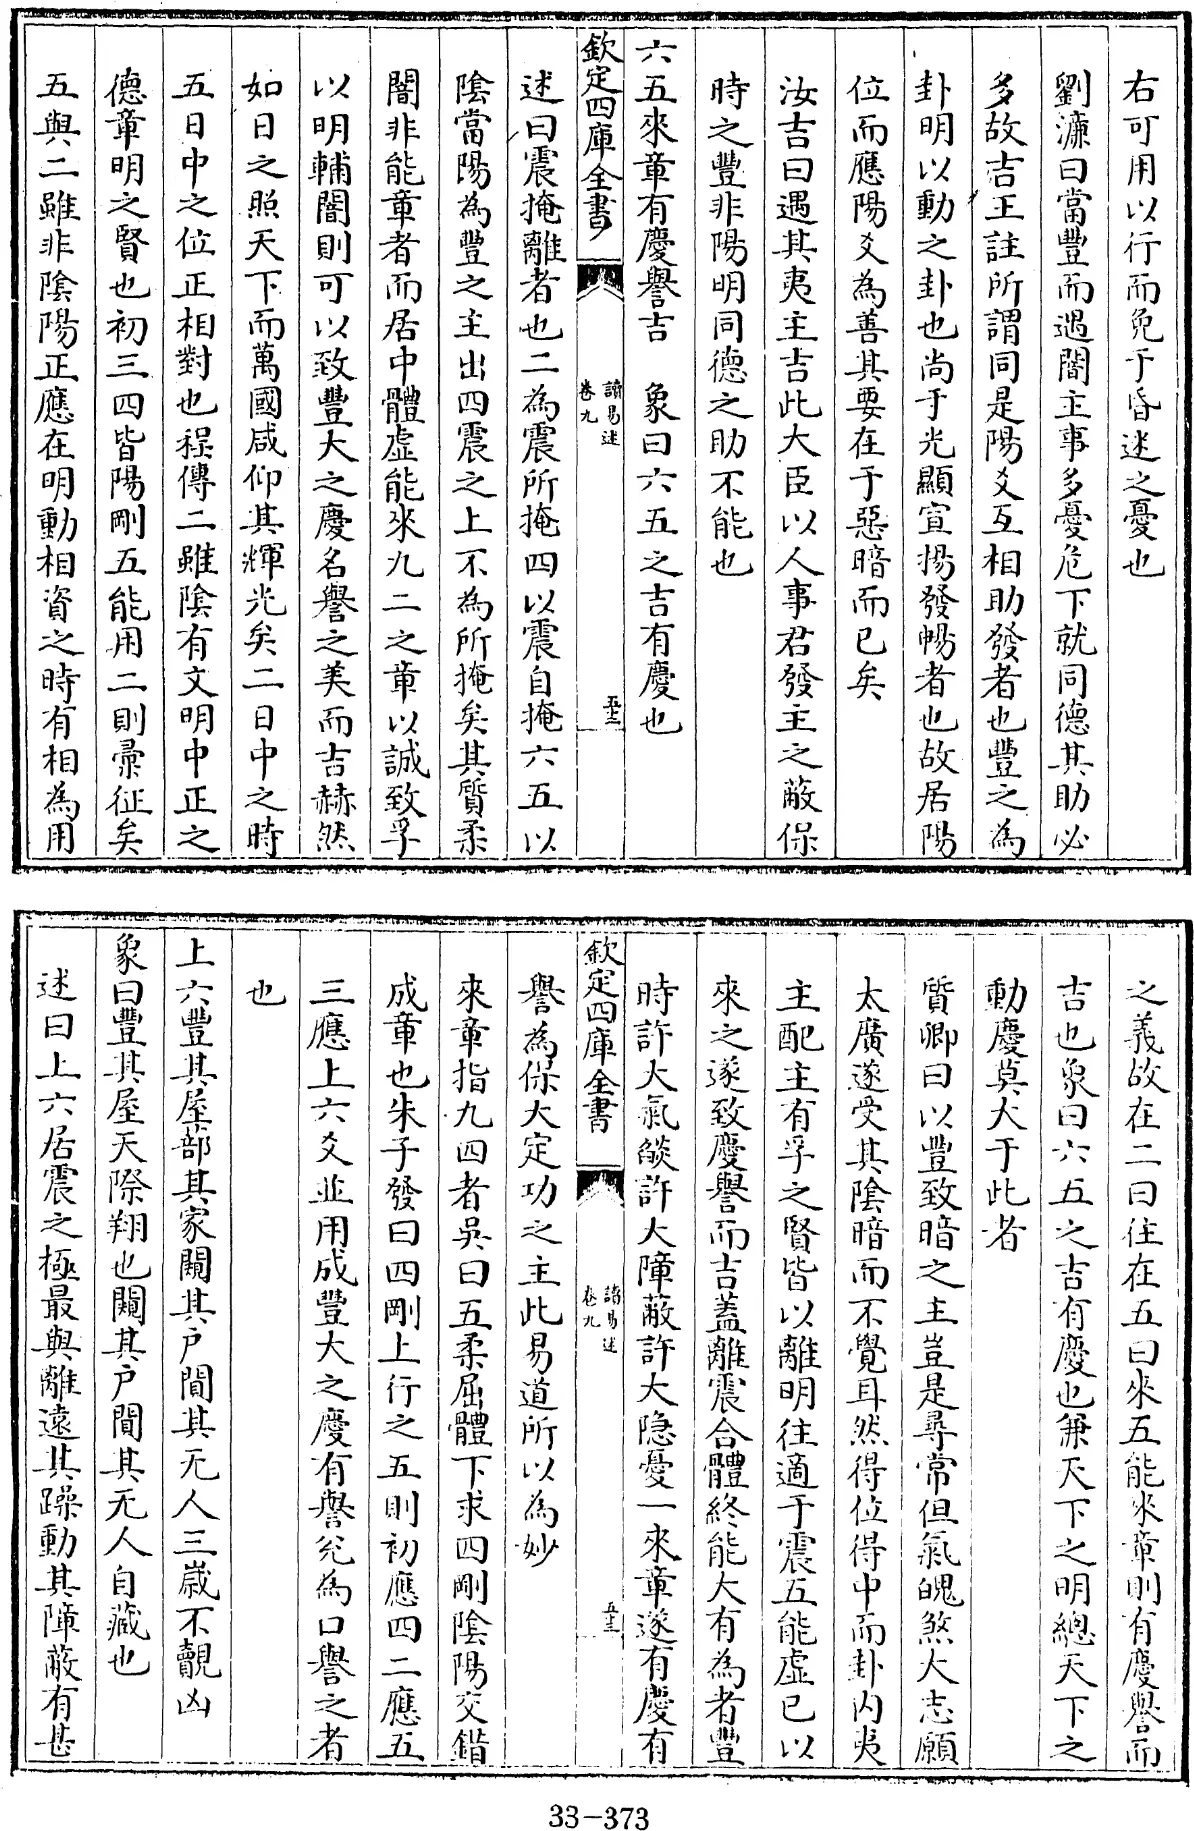 右可用以行而免于昏迷之憂也
劉濂曰當豐而遇闇主事多憂危下就同德其助必
多故吉王註所謂同是陽爻互相助發者也豐之為
卦明以動之卦也尚于光顯宣揚發暢者也故居陽
位而應陽爻為善其要在于惡暗而已矣
汝吉曰遇其夷主吉此大臣以人事君發主之蔽保
時之豐非陽明同德之助不能也
六五來章有慶譽吉　象曰六五之吉有慶也
欽定四庫全書　讀易述卷九　五十二
述曰震掩離者也二為震所掩四以震自掩六五以
陰當陽為豐之主出四震之上不為所掩矣其質柔
闇非能章者而居中體虛能來九二之章以誠致孚
以明輔闇則可以致豐大之慶名譽之美而吉赫然
如日之照天下而萬國咸仰其輝光矣二日中之時
五日中之位正相對也程傳二雖陰有文明中正之
德章明之賢也初三四皆陽剛五能用二則彚征矣
五與二雖非陰陽正應在明動相資之時有相為用
之義故在二曰往在五曰來五能來章則有慶譽而
吉也象曰六五之吉有慶也兼天下之明總天下之
動慶莫大于此者
質卿曰以豐致暗之主豈是尋常但氣魄煞大志願
太廣遂受其陰暗而不覺耳然得位得中而卦內夷
主配主有孚之賢皆以離明往適于震五能虛已以
來之遂致慶譽而吉蓋離震合體終能大有為者豐
時許大氣燄許大障蔽許大隱憂一來章遂有慶有
欽定四庫全書　讀易述卷九　五十三
譽為保大定功之主此易道所以為妙
來章指九四者吳曰五柔屈體下求四剛陰陽交錯
成章也朱子發曰四剛上行之五則初應四二應五
三應上六爻並用成豐大之慶有譽兊為口譽之者
也
上六豐其屋蔀其家闚其戶闃其无人三歲不覿凶
象曰豐其屋天際翔也闚其戶闃其无人自藏也
述曰上六居震之極最與離遠其躁動其障蔽有甚
33-373